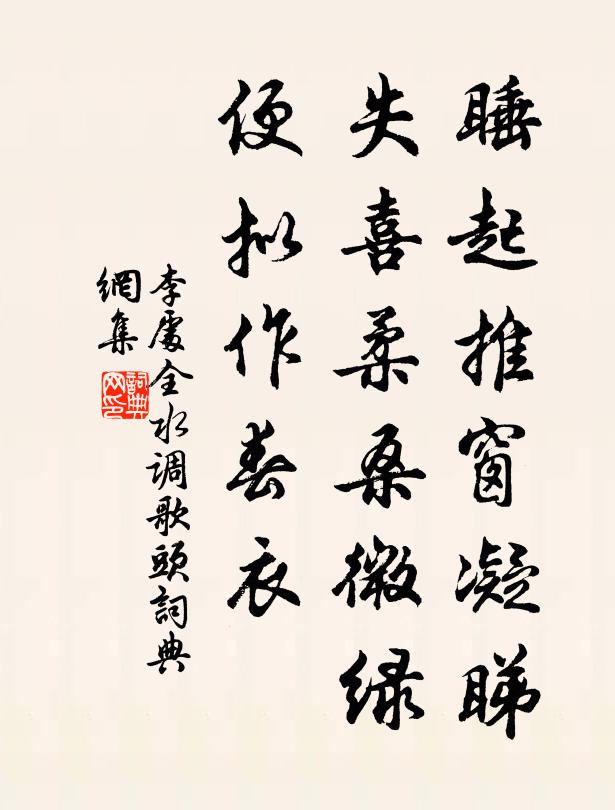 睡起推窗凝睇
失喜柔桑微绿
便拟作春衣
李處全水调歌頭詞典
網集
詞典
网印